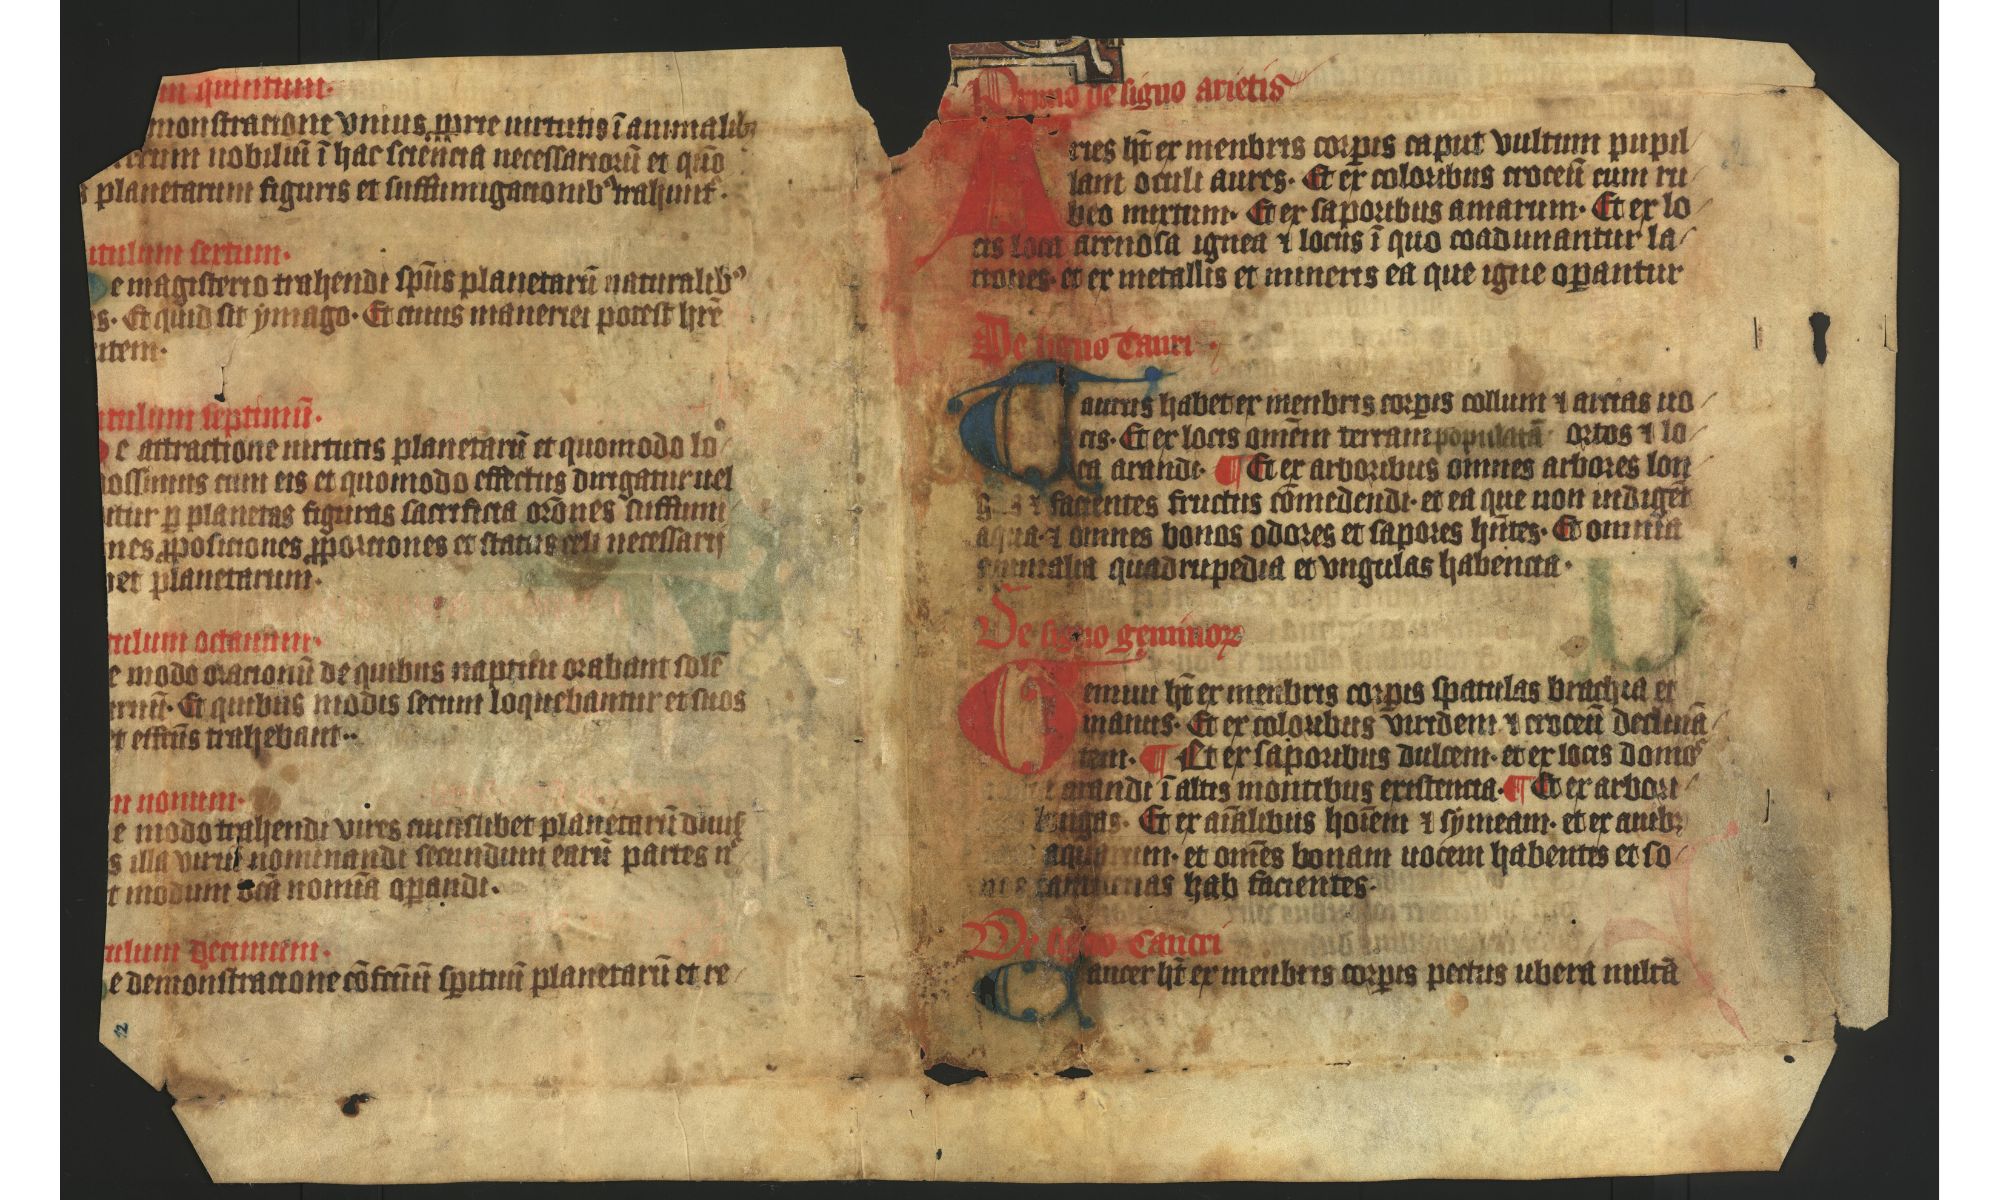 m quintum.
monstratione unius prie uirtutis ī animalib;
nobiliū ī hac sciencia necessariorū et quō
planetarum figuris et suffumigacionib9 trahunt.
itulum sextum.
e magisterio trahendi sp̄us planetarū naturalib9
s. Et quid sit ymago. Et cuius maneriei potest hr̄e
utem.
itulum septimū.
e attractione uirtutis planetarū et quomodo lo
ossimus cum eis et quomodo effectus dirigatur uel
itur p planetas figuras sacrificia orōnes suffumi
nes proposiciones proporciones et status celi necessarij
et planetarum.
tulum octauum.
e modo oracionū de quibus naptini orabant
Et quibus modis secum loquebantur et suos
t effcūs trahebant..
m nonum.
e modo trahendi uires cuiuslibet planetarū
s illa uirtū nominandi secundum earū partes
t modum dcā nomīa operandi.
tulum decimum.
e demonstracione spirituū planetarū et re
12
Primo de signo arietis
Aries ht̄ ex menbris corpis caput vultum pupil
lam oculi aures. Et ex coloribus croceū cum ru
beo mixtum. Et ex saporibus amarum. Et ex lo
cis loca arenosa ignea ⁊ locus ī quo coadunantur la
trones. et ex metallis et mineris ea que igne operantur
De signo Tauri.
Taurus habet ex menbris corpis collum ⁊ arcias uo
cis. Et ex locis omēm terram populatā ortos ⁊ lo
ca arandi. ¶ Et ex arboribus omnes arbores lon
gas ⁊ facientes fructus cōmedendi. et ea que non indigēt
aqua. ⁊ omnes bonos odores et sapores hn̄tes. Et omnia
animalia quadrupedia et vngulas habencia.
De signo geminoꝝ
Gemini ht̄ ex menbris corpis spatulas brachia et
manus. Et ex coloribus viridem ⁊ croceū declinā
tem. ¶ Et ex saporibus dulcem. et ex locis domos
arandi ī altis montibus existencia. ¶ Et ex arbori
longas. Et ex aīalibus hoīem ⁊ symeam. et ex auib;
aquarum. et omēs bonam uocem habentes et so
hab facientes.
De signo Cancri
Cancer ht̄ ex menbris corpis pectus ubera